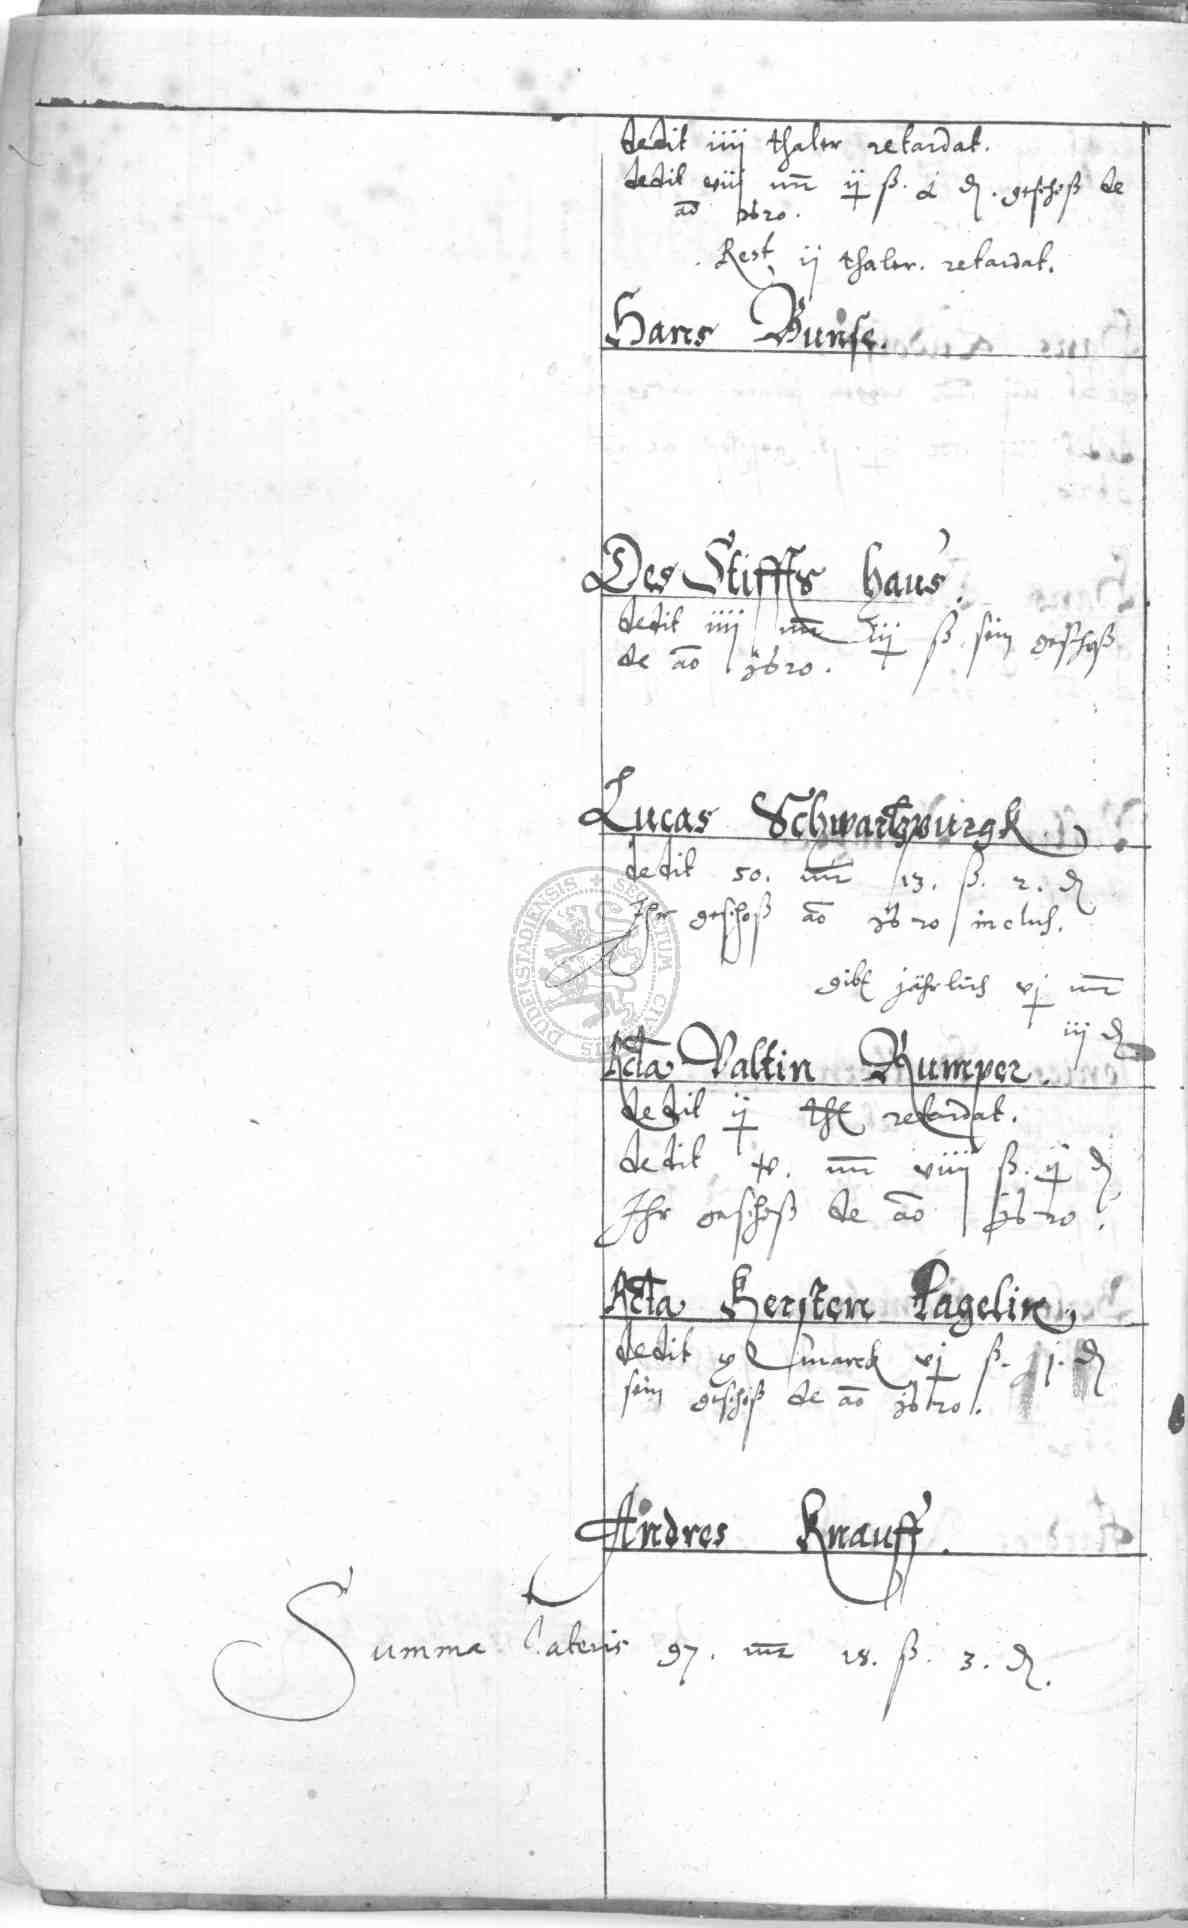 dedit iiij thaler retardat.
dedit viij mr ij ß. α ₰. geschoß de
ao 1620.
Rest ij thaler. retardat.
Hans Bunse.
Des Stiffts haus.
dedit iiij mr iij ß. sein geschoß
de ao 1620.
Lucas Schwartzpurgk
dedit 50. mr 13. ß. 2. ₰
Ihr geschoß ao 1620 inclus.
gibt jährlich vj mr
iij ₰
Relicta Valtin Rumper.
dedit ij thl retardat.
dedit mr viiij ß. ij ₰
Ihr geschoß de ao 1620.
Relicta Kersten Pagelin.
dedit x marck vj ß. j. ₰
sein geschoß de ao 1620.
Andres Knauff.
Summa Lateris 97. mr 18. ß. 3. ₰.
SECRETUM CIVITATIS DUDERSTADIENSIS